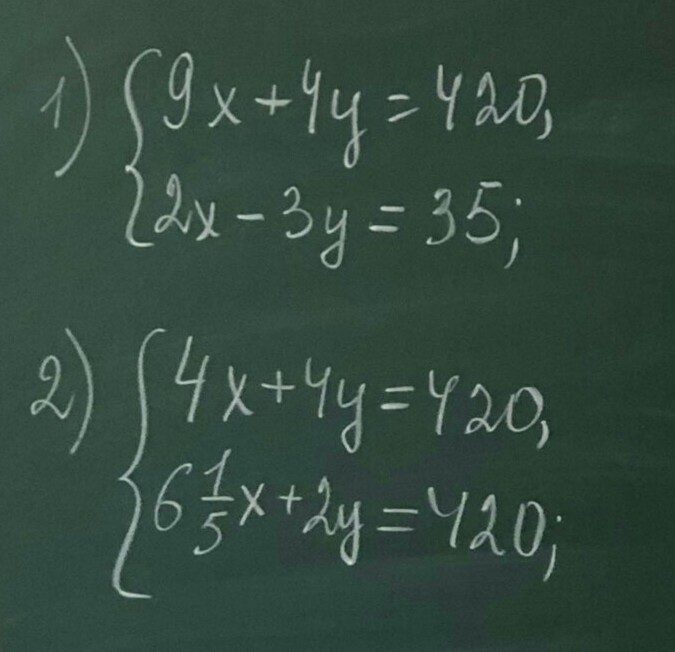 1) { 9x + 4y = 420,
2x - 3y = 35;
2) { 4x + 4y = 420,
6 1/5 x + 2y = 420;